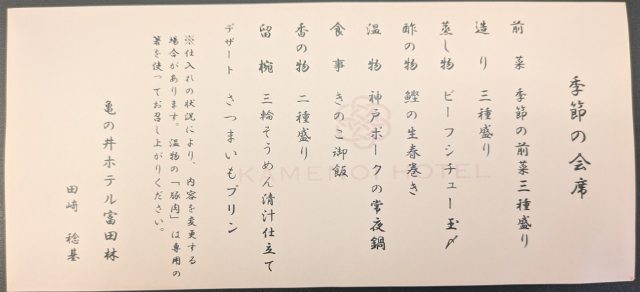 季節の会席
前菜 季節の前菜三種盛り
造り 三種盛り
蒸し物 ビーフシチュー玉〆
酢の物 鰹の生春巻き
温物 神戸ポークの常夜鍋
食事 きのこ御飯
香の物 二種盛り
留椀 三輪そうめん清汁仕立て
デザート さつまいもプリン
※仕入れの状況により、内容を変更する
場合があります。温物の「豚肉」は専用の
箸を使ってお召し上がりください。
亀の井ホテル富田林
田崎 稔基
KAMENOI HOTEL